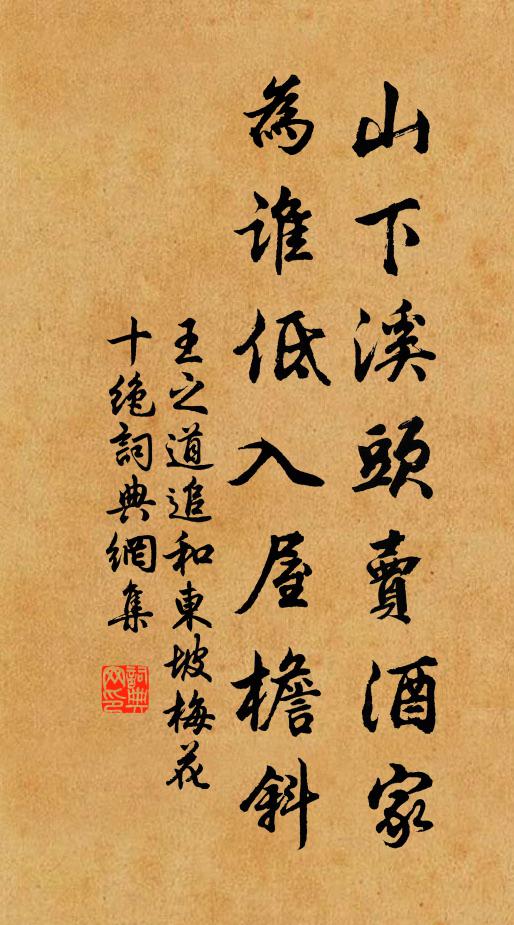 山下溪頭賣酒家
為誰低入屋檐斜
王之道追和東坡梅花
十絶詞典網集
詞典网印